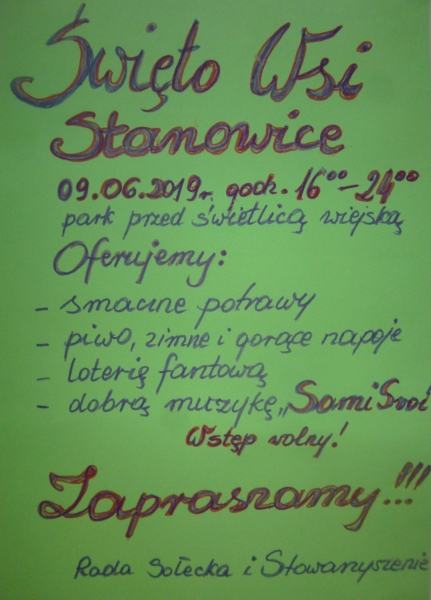 Święto Wsi
Stanowice
09.06.2019r. godz. 16⁰⁰-24⁰⁰
park przed świetlicą wiejską
Oferujemy:
- smaczne potrawy
- piwo, zimne i gorące napoje
- loterię fantową
- dobrą muzykę „Sami Swoi
Wstęp wolny!
Zapraszamy!!!
Rada Sołecka i Stowarzyszenie